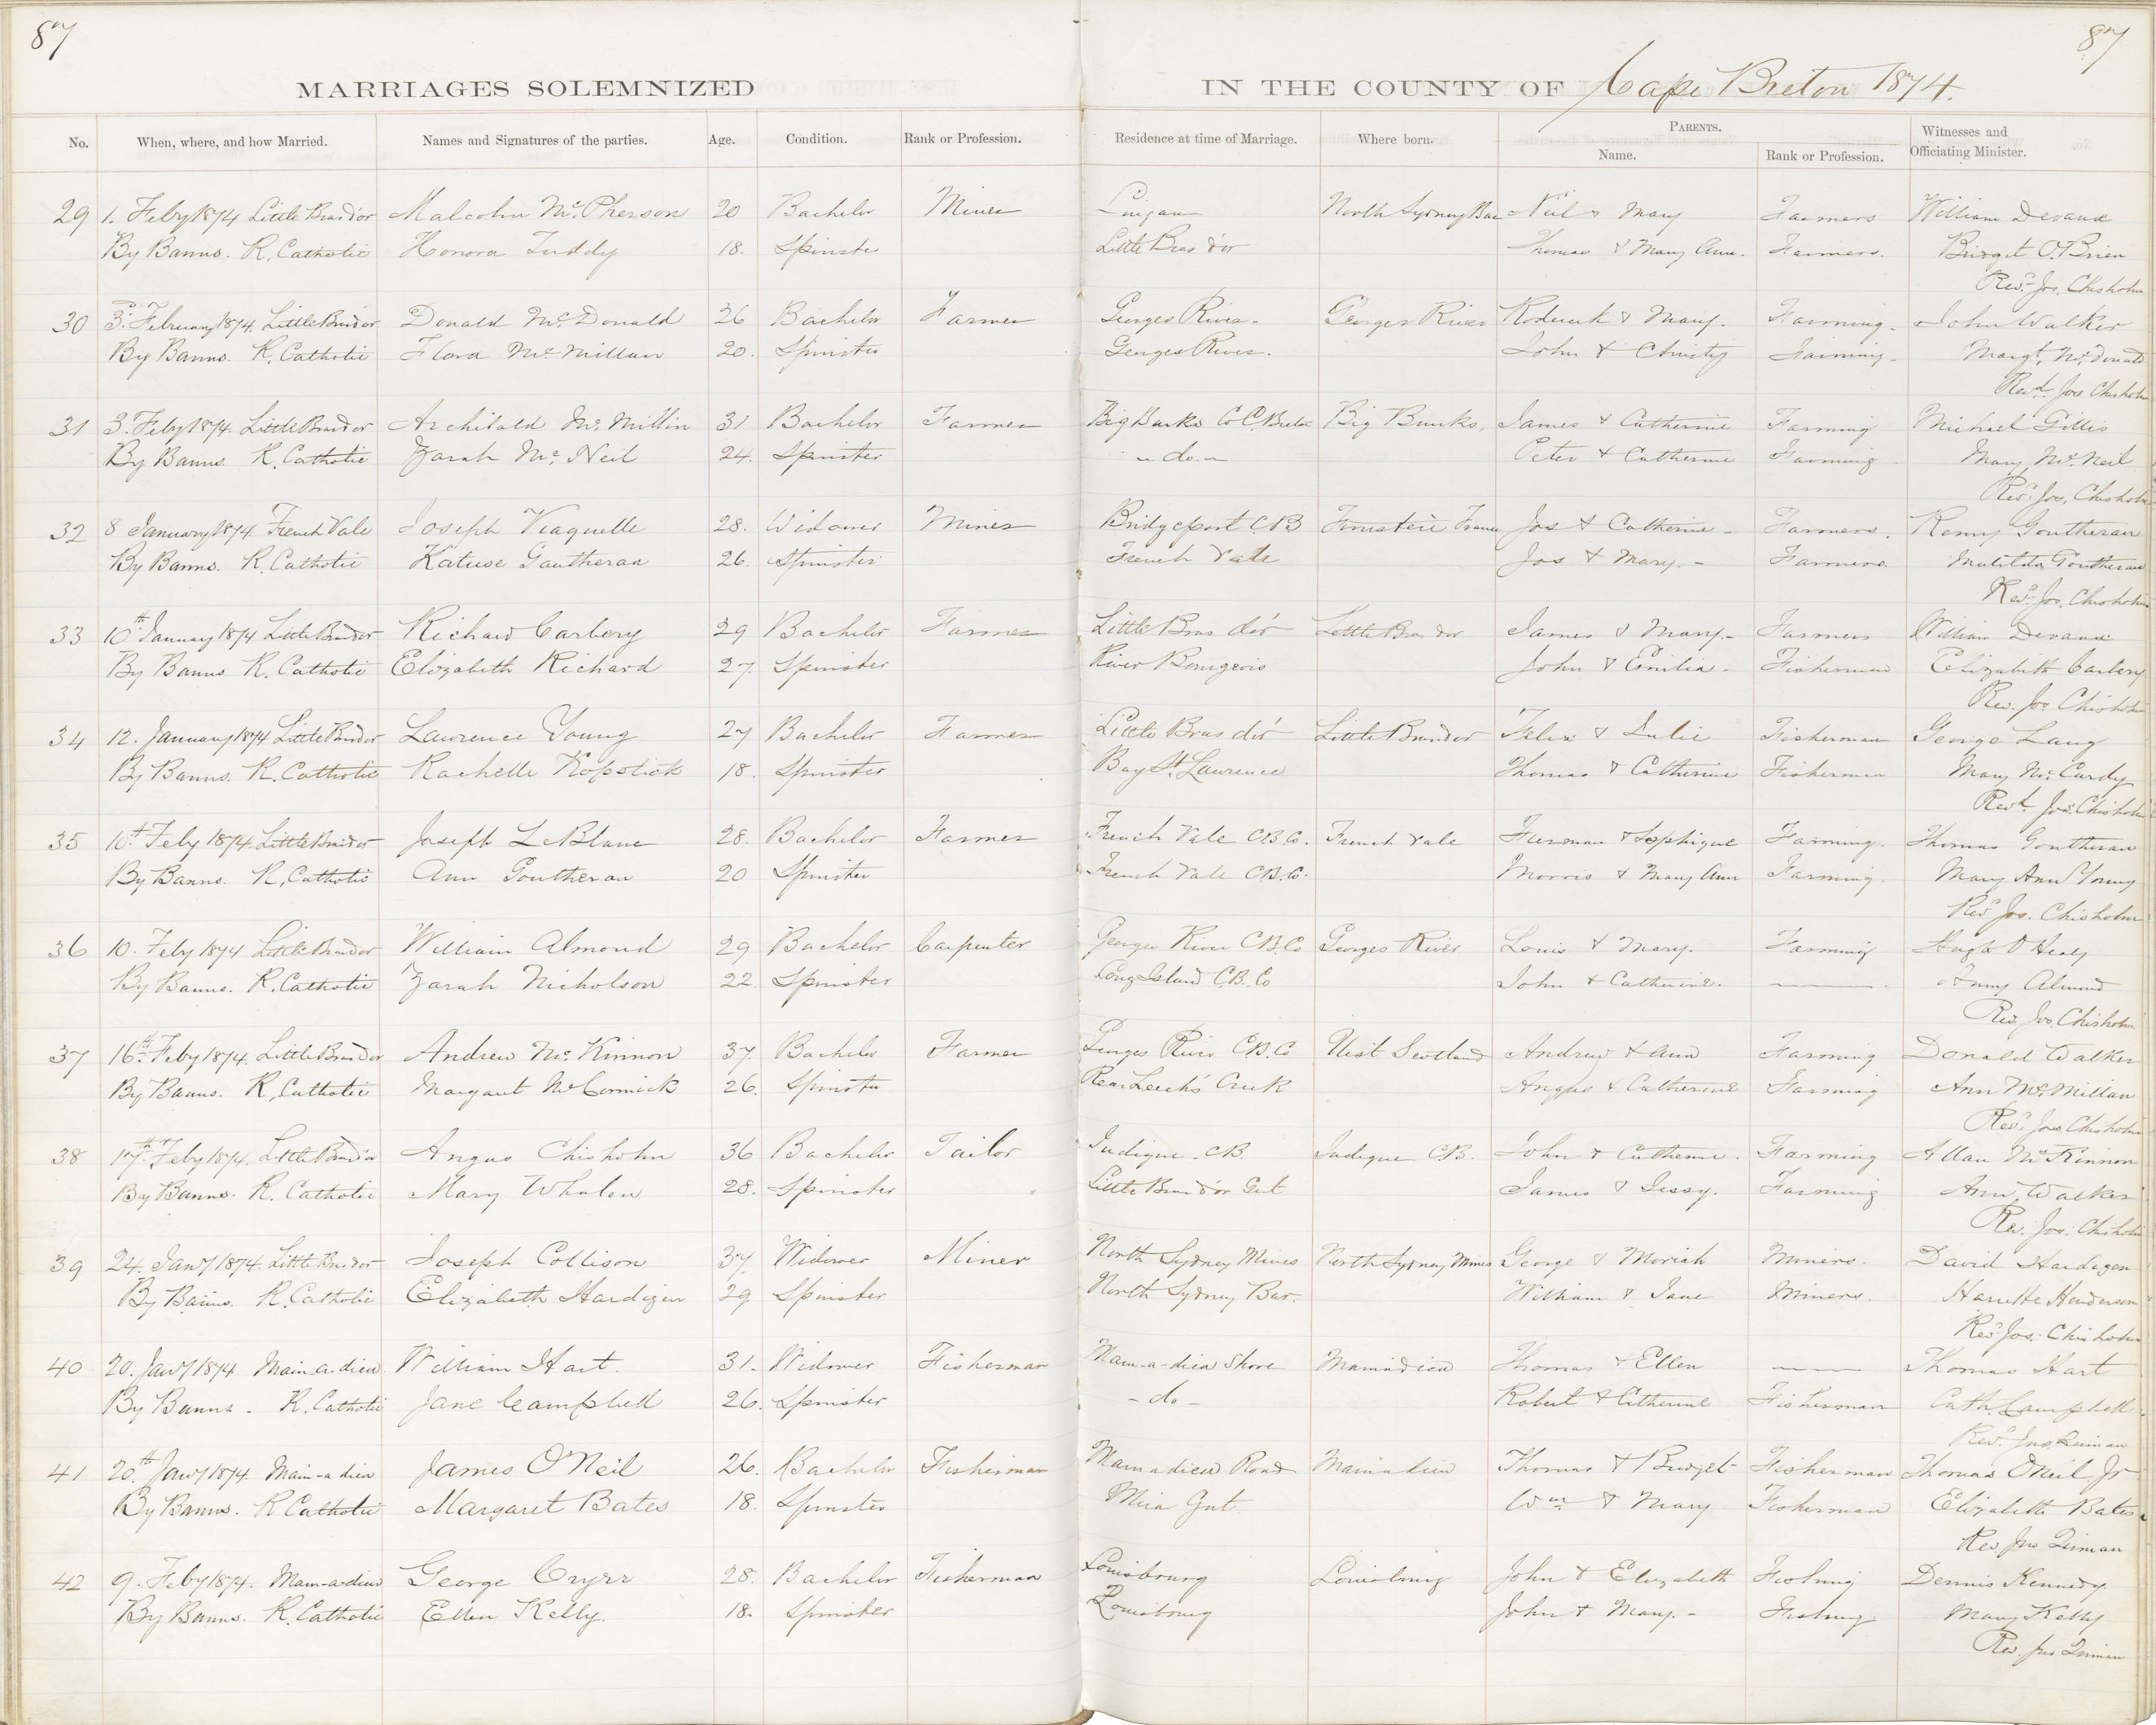 87
87
MARRIAGES SOLEMNIZED
IN THE COUNTY OF Cape Breton 1874.
No. When, where, and how Married. Names and Signatures of the parties. Age. Condition. Rank or Profession. Residence at time of Marriage. Where born. PARENTS. Name. Rank or Profession. Witnesses and Officiating Minister.
29 1. Feby 1874 Little Brasdor Malcolm Mc.Pherson 20 Bachelor Miner Lingan North Sydney Bar Neil & Mary Farmers William Devaux
By Banns. R. Catholic Honora Tuddy 18. Spinster Little Bras d'or Thomas & Mary Ann. Farmers. Bridget O.Brien
Revd. Jos. Chisholm
30 3. February 1874. Little Brasdor Donald Mc.Donald 26 Bachelor Farmer Georges River. Georges River Roderick & Mary. Farming. John Walker
By Banns. R. Catholic Flora Mc.Millan 20. Spinster Georges River. John & Christy Farming Margt. Mc.Donald
Revd. Jos Chisholm
31 3. Feby 1874. Little Brasdor Archibald Mc.Millin 31 Bachelor Farmer Big Banks Co C.Breton Big Banks, James & Catherine Farming Michael Gillis
By Banns R. Catholic Sarah Mc.Neil 24. Spinster " do " Peter & Catherine Farming Mary Mc.Neil
Revd. Jos, Chisholm
32 8 January 1874. French Vale Joseph Viaquelle 28. Widower Miner Bridgeport C.B France Jos & Catherine Farmers. Remy Goutheran
By Banns. R. Catholic Goutheran 26. Spinster French Vale Jos & Mary. Farmers Matilda Goutheran
Revd. Jos. Chisholm
33 10th January 1874 Little Brasdor Richard Carbery 29 Bachelor Farmer Little Bras d'or Little Bras dor James & Mary Farmers William Devaux
By Banns R. Catholic Elizabeth Richard 27. Spinster River Bourgeois John & Emilia. Fisherman Elizabeth Carbery
Rev. Jos Chisholm
34 12. January 1874 Little Brasdor Lawrence Young 27 Bachelor Farmer Little Bras d'or Little Brasdor Felix & Julie Fisherman George Lang
By Banns. R. Catholic Rachelle Kopstick 18. Spinster Bay St. Lawrence Thomas & Catherine Fisherman Mary Mc.Curdy
Revd. Jos. Chisholm
35 10th Feby 1874 Little Brasdor Joseph LeBlanc 28. Bachelor Farmer French Vale C.B.Co. French Vale & Sophique Farming. Thomas Goutheran
By Banns. R. Catholic Ann Goutheran 20 Spinster French Vale C.B.Co. Morris & Mary Ann Farming. Mary Ann Young
Revd Jos. Chisholm
36 10. Feby 1874 Little Brasdor William Almond 29 Bachelor Carpenter Georges River C.B.Co Georges River Louis & Mary. Farming Hugh O Healy
By Banns. R. Catholic Sarah Nicholson 22 Spinster Long Island C.B.Co John & Catherine. Anny Almond
Rev. Jos. Chisholm
37 16th. Feby 1874. Little Brasdor Andrew Mc.Kinnon 37. Bachelor Farmer Georges River C.B.Co Uist Scotland Andrew & Ann Farming Donald Walker
By Banns. R. Catholic Margaret McCormick 26. Spinster Rear Leech's Creek Angus & Catherine Farming Ann Mc.Millan
Revd. Jos, Chisholm
38 17th. Feby 1874. Little Brasdor Angus Chisholm 36 Bachelor Tailor Judique. C.B. Judique C.B. John & Catherine. Farming Allan Mc.Kinnon
By Banns. R. Catholic Mary Whalen 28. Spinster Little Brasd'or Gut James & Jessy. Farming Ann Walker
Rev. Jos. Chisholm
39 24. Jany 1874. Little Brasdor Joseph Collison 37 Widower Miner North Sydney Mines North Sydney Mines George & Moriah Miners. David Hardigen
By Banns. R. Catholic Elizabeth Hardigen 29 Spinster North Sydney Bar. William & Jane Miners. Hariette Henderson
Revd Jos. Chisholm
40 20. Jany 1874 Main-a-dieu William Hart. 31. Widower Fisherman Main-a-dieu Shore Mainadieu Thomas & Ellen Thomas Hart
By Banns. R. Catholic Jane Campbell 26. Spinster - do - Robert & Catherine Fisherman Cath. Campbell
Revd. Jno Quinan
41 20.th Jany 1874. Main-a dieu James O'Neil 26. Bachelor Fisherman Mainadieu Road Mainadieu Thomas & Bridget Fisherman Thomas ONeil Jr
By Banns. R Catholic Margaret Bates 18. Spinster Mira Gut. Wm & Mary Fisherman Elizabeth Bates
Rev. Jno Quinan
42 9. Feby 1874. Main-a-dieu George Cryer 28. Bachelor Fisherman Louisbourg Louisburg John & Elizabeth Fishing Dennis Kennedy.
By Banns. R. Catholic Ellen Kelly. 18. Spinster Louisbourg John & Mary. Fishing Mary Kelly
Rev. Jno Quinan